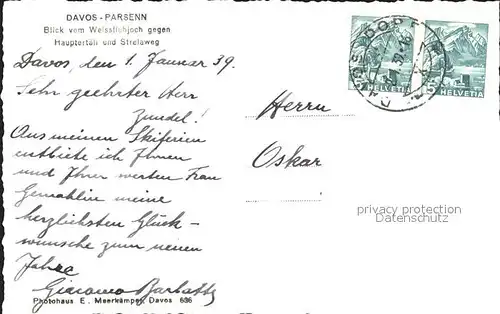 DAVOS - PARSENN
Blick vom Weissfluhjoch gegen
Hauptertäli und Strelaweg
Davos, den 1. Januar 39.
Sehr geehrter Herr
Zundel!
Aus meinen Skiferien
entbiete ich Ihnen
und Ihrer werten Frau
Gemahlin meine
herzlichsten Glück-
wünsche zum neuen
Jahre
Giacomo
Photohaus E. Meerkämper, Davos 696
Herrn
Oskar
HELVETIA
HELVETIA
DAVOS DORF
privacy protection
DELCAMPE